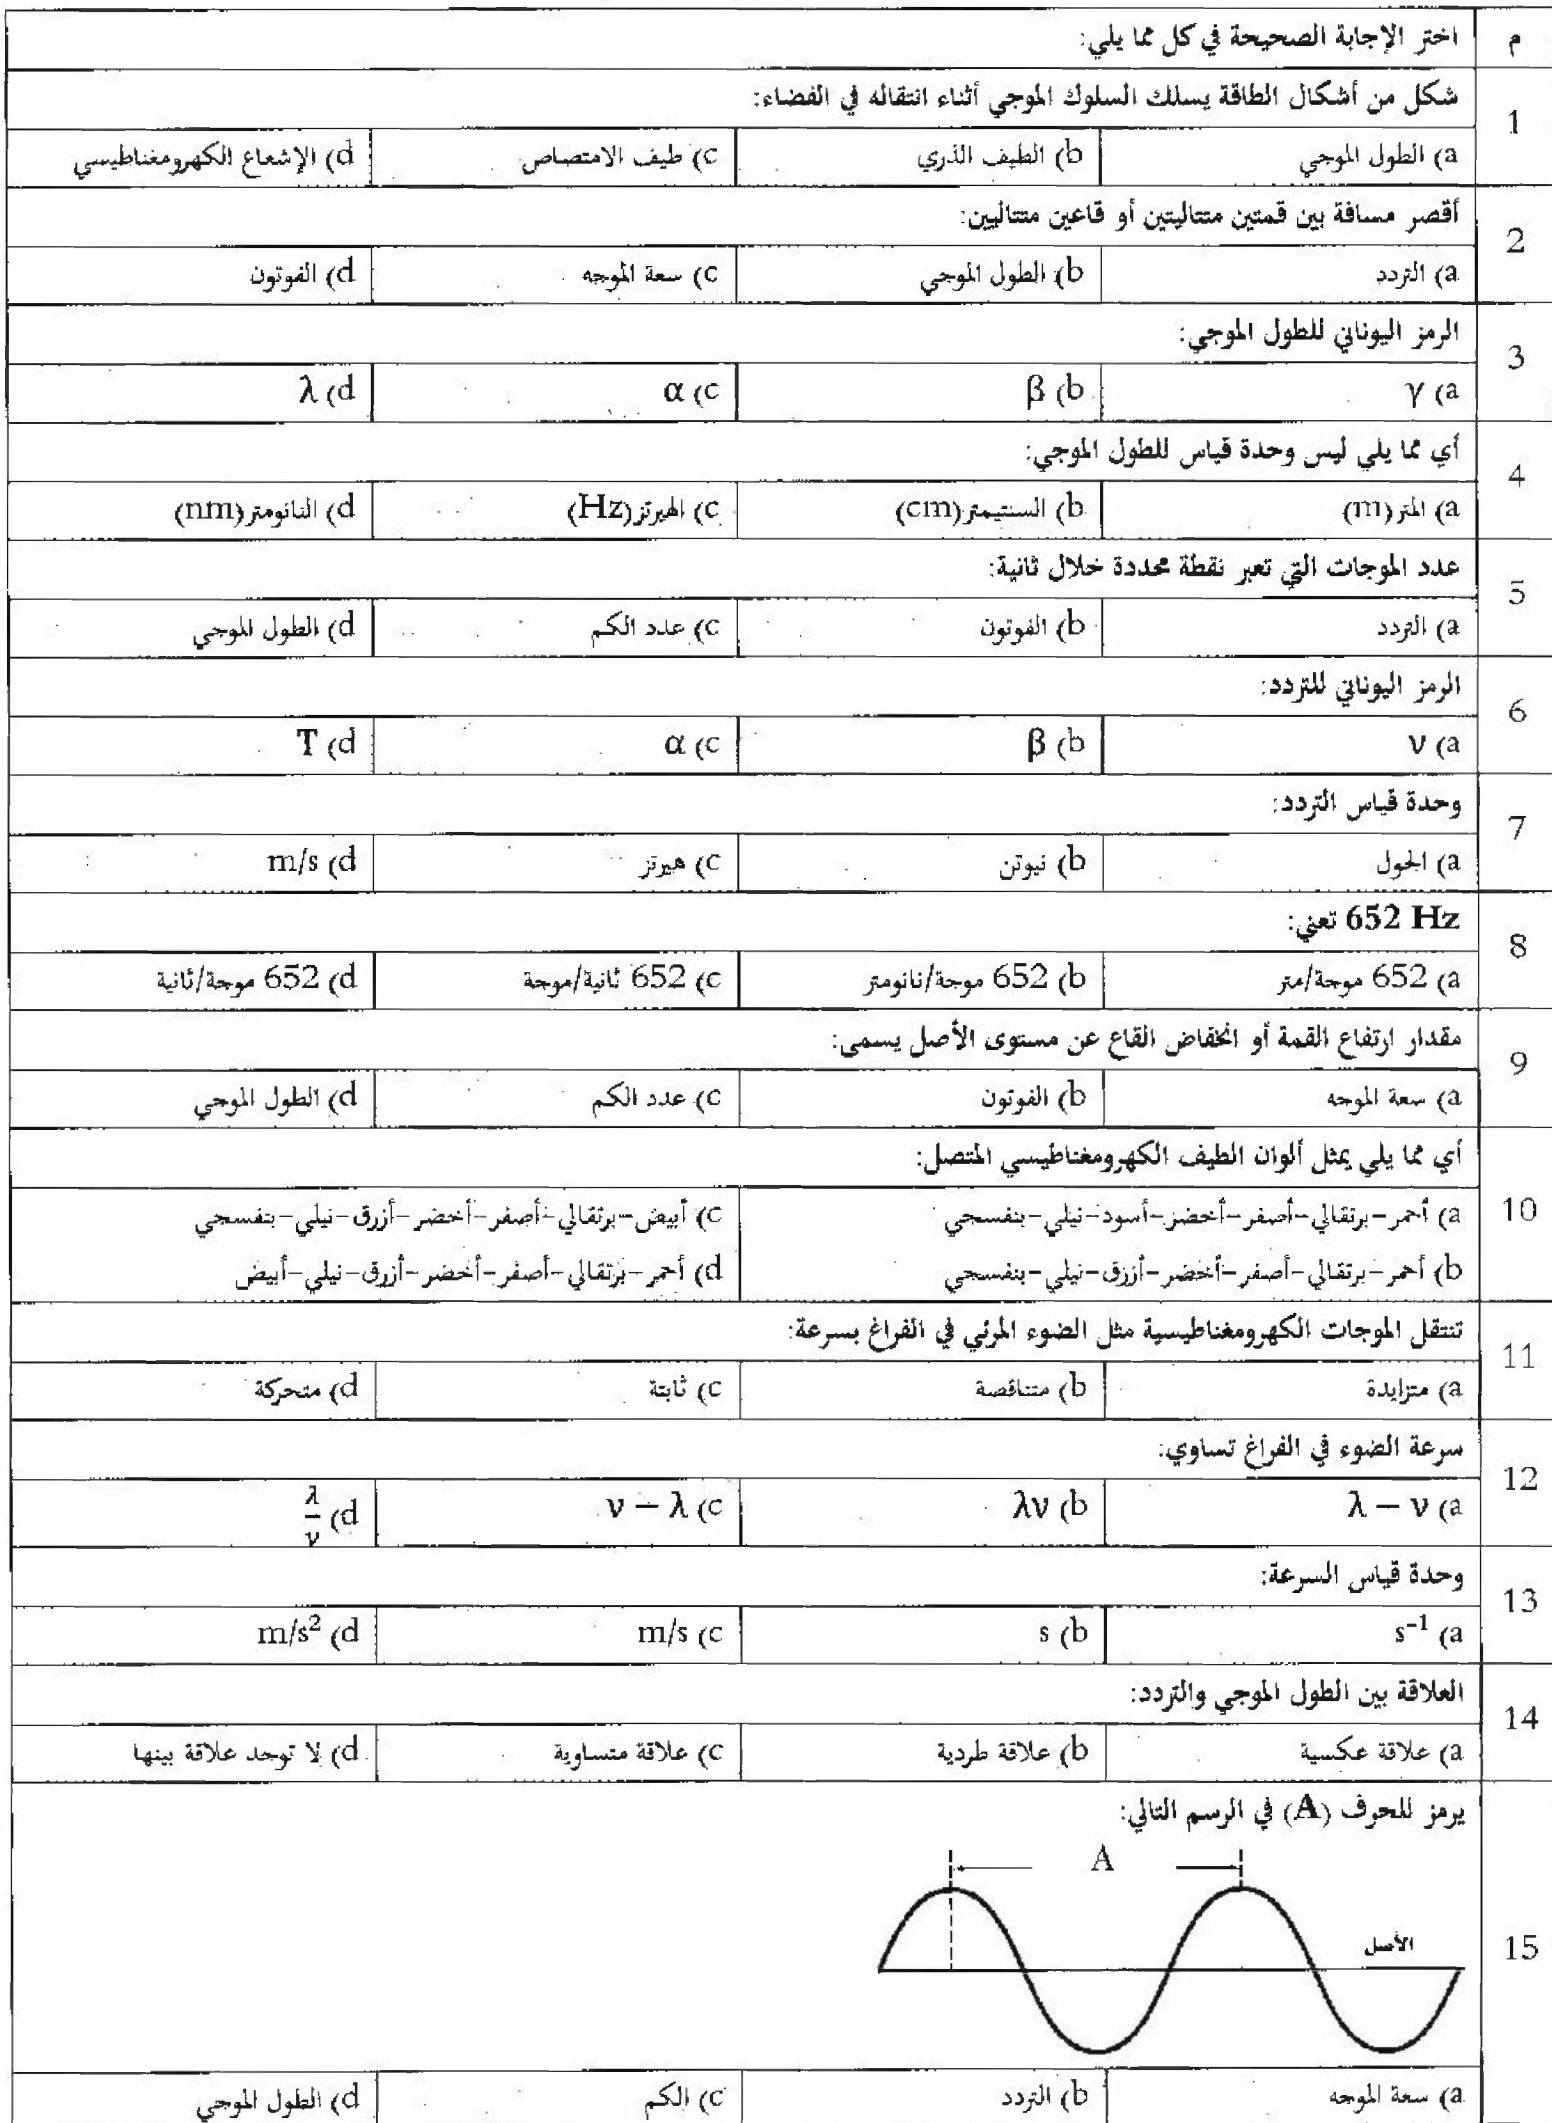 م
اختر الإجابة الصحيحة في كل مما يلي:
1
شكل من أشكال الطاقة يسلك السلوك الموجي أثناء انتقاله في الفضاء:
a) الطول الموجي b) الطيف الذري c) طيف الامتصاص d) الإشعاع الكهرومغناطيسي
2
أقصر مسافة بين قمتين متتاليتين أو قاعين متتاليين:
a) التردد b) الطول الموجي c) سعة الموجه d) الفوتون
3
الرمز اليوناني للطول الموجي:
a) γ b) β c) α d) λ
4
أي مما يلي ليس وحدة قياس للطول الموجي:
a) المتر(m) b) السنتيمتر(cm) c) الهيرتز(Hz) d) النانومتر(nm)
5
عدد الموجات التي تعبر نقطة محددة خلال ثانية:
a) التردد b) الفوتون c) عدد الكم d) الطول الموجي
6
الرمز اليوناني للتردد:
a) ν b) β c) α d) T
7
وحدة قياس التردد:
a) الجول b) نيوتن c) هيرتز d) m/s
8
652 Hz تعني:
a) 652 موجة/متر b) 652 موجة/نانومتر c) 652 ثانية/موجة d) 652 موجة/ثانية
9
مقدار ارتفاع القمة أو انخفاض القاع عن مستوى الأصل يسمى:
a) سعة الموجه b) الفوتون c) عدد الكم d) الطول الموجي
10
أي مما يلي يمثل ألوان الطيف الكهرومغناطيسي المتصل:
a) أحمر-برتقالي-أصفر-أخضر-أسود-نيلي-بنفسجي c) أبيض-برتقالي-أصفر-أخضر-أزرق-نيلي-بنفسجي
b) أحمر-برتقالي-أصفر-أخضر-أزرق-نيلي-بنفسجي d) أحمر-برتقالي-أصفر-أخضر-أزرق-نيلي-أبيض
11
تنتقل الموجات الكهرومغناطيسية مثل الضوء المرئي في الفراغ بسرعة:
a) متزايدة b) متناقصة c) ثابتة d) متحركة
12
سرعة الضوء في الفراغ تساوي:
a) λ − ν b) λν c) ν − λ d) λ/ν
13
وحدة قياس السرعة:
a) s⁻¹ b) s c) m/s d) m/s²
14
العلاقة بين الطول الموجي والتردد:
a) علاقة عكسية b) علاقة طردية c) علاقة متساوية d) لا توجد علاقة بينها
15
يرمز للحرف (A) في الرسم التالي:
A
الأصل
a) سعة الموجه b) التردد c) الكم d) الطول الموجي